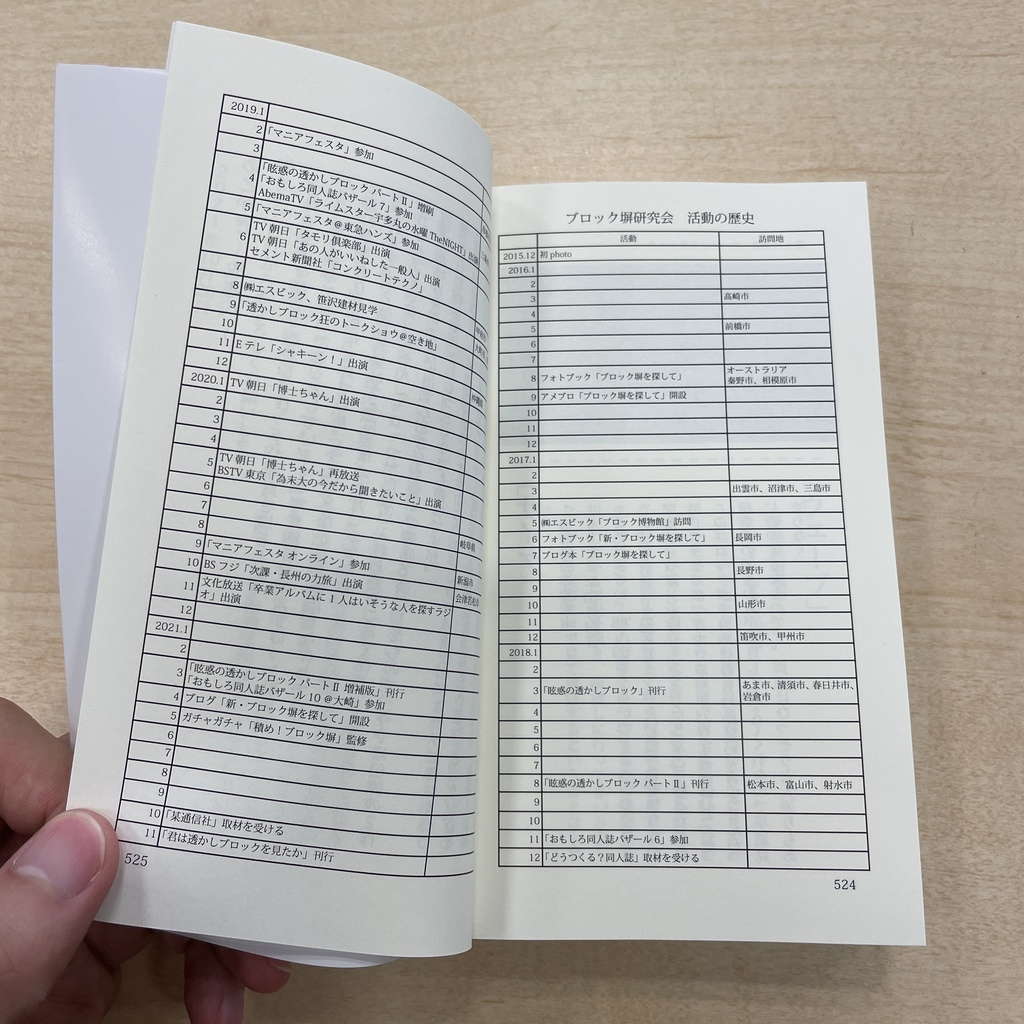 ブロック塀研究会 活動の歴史
活動 訪問地
2015.12 初photo
2016.1
2
3 高崎市
4
5 前橋市
6
7
8 フォトブック「ブロック塀を探して」 オーストラリア
秦野市、相模原市
9 アメブロ「ブロック塀を探して」開設
10
11
12
2017.1
2
3 出雲市、沼津市、三島市
4
5 ㈱エスビック「ブロック博物館」訪問
6 フォトブック「新・ブロック塀を探して」 長岡市
7 ブログ本「ブロック塀を探して」
8 長野市
9
10 山形市
11
12 笛吹市、甲州市
2018.1
2
3 「眩惑の透かしブロック」刊行 あま市、清須市、春日井市、
岩倉市
4
5
6
7
8 「眩惑の透かしブロック パートⅡ」刊行 松本市、富山市、射水市
9
10
11 「おもしろ同人誌バザール6」参加
12 「どうつくる?同人誌」取材を受ける
524
2019.1
2 「マニアフェスタ」参加
3
4 「眩惑の透かしブロック パートⅡ」増刷
「おもしろ同人誌バザール7」参加
AbemaTV「ライムスター宇多丸の水曜 TheNIGHT」出演
5 「マニアフェスタ@東急ハンズ」参加
6 TV朝日「タモリ倶楽部」出演
TV朝日「あの人がいいねした一般人」出演
セメント新聞社「コンクリートテクノ」
7
8 ㈱エスビック、笹沢建材見学
9 「透かしブロック狂のトークショウ@空き地」
10
11 Eテレ「シャキーン!」出演
12
2020.1 TV朝日「博士ちゃん」出演
2
3
4
5 TV朝日「博士ちゃん」再放送
BSTV東京「為末大の今だから聞きたいこと」出演
6
7
8 岐阜県
9 「マニアフェスタ オンライン」参加
10 BSフジ「次課・長州の力旅」出演 新潟市
11 文化放送「卒業アルバムに1人はいそうな人を探すラジ
オ」出演 会津若松市
12
2021.1
2
3 「眩惑の透かしブロック パートⅡ 増補版」刊行
「おもしろ同人誌バザール10@大崎」参加
4 ブログ「新・ブロック塀を探して」開設
5 ガチャガチャ「積め!ブロック塀」監修
6
7
8
9
10 「某通信社」取材を受ける
11 「君は透かしブロックを見たか」刊行
525